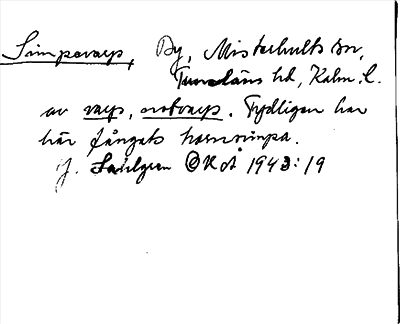 Simpevarp, By, Misterhults sn,
Tunaläns hd, Kalm. l.
av varp, notvarp. Tydligen har
här fångats hornsimpa.
J. Sahlgren OKOA 1943:19